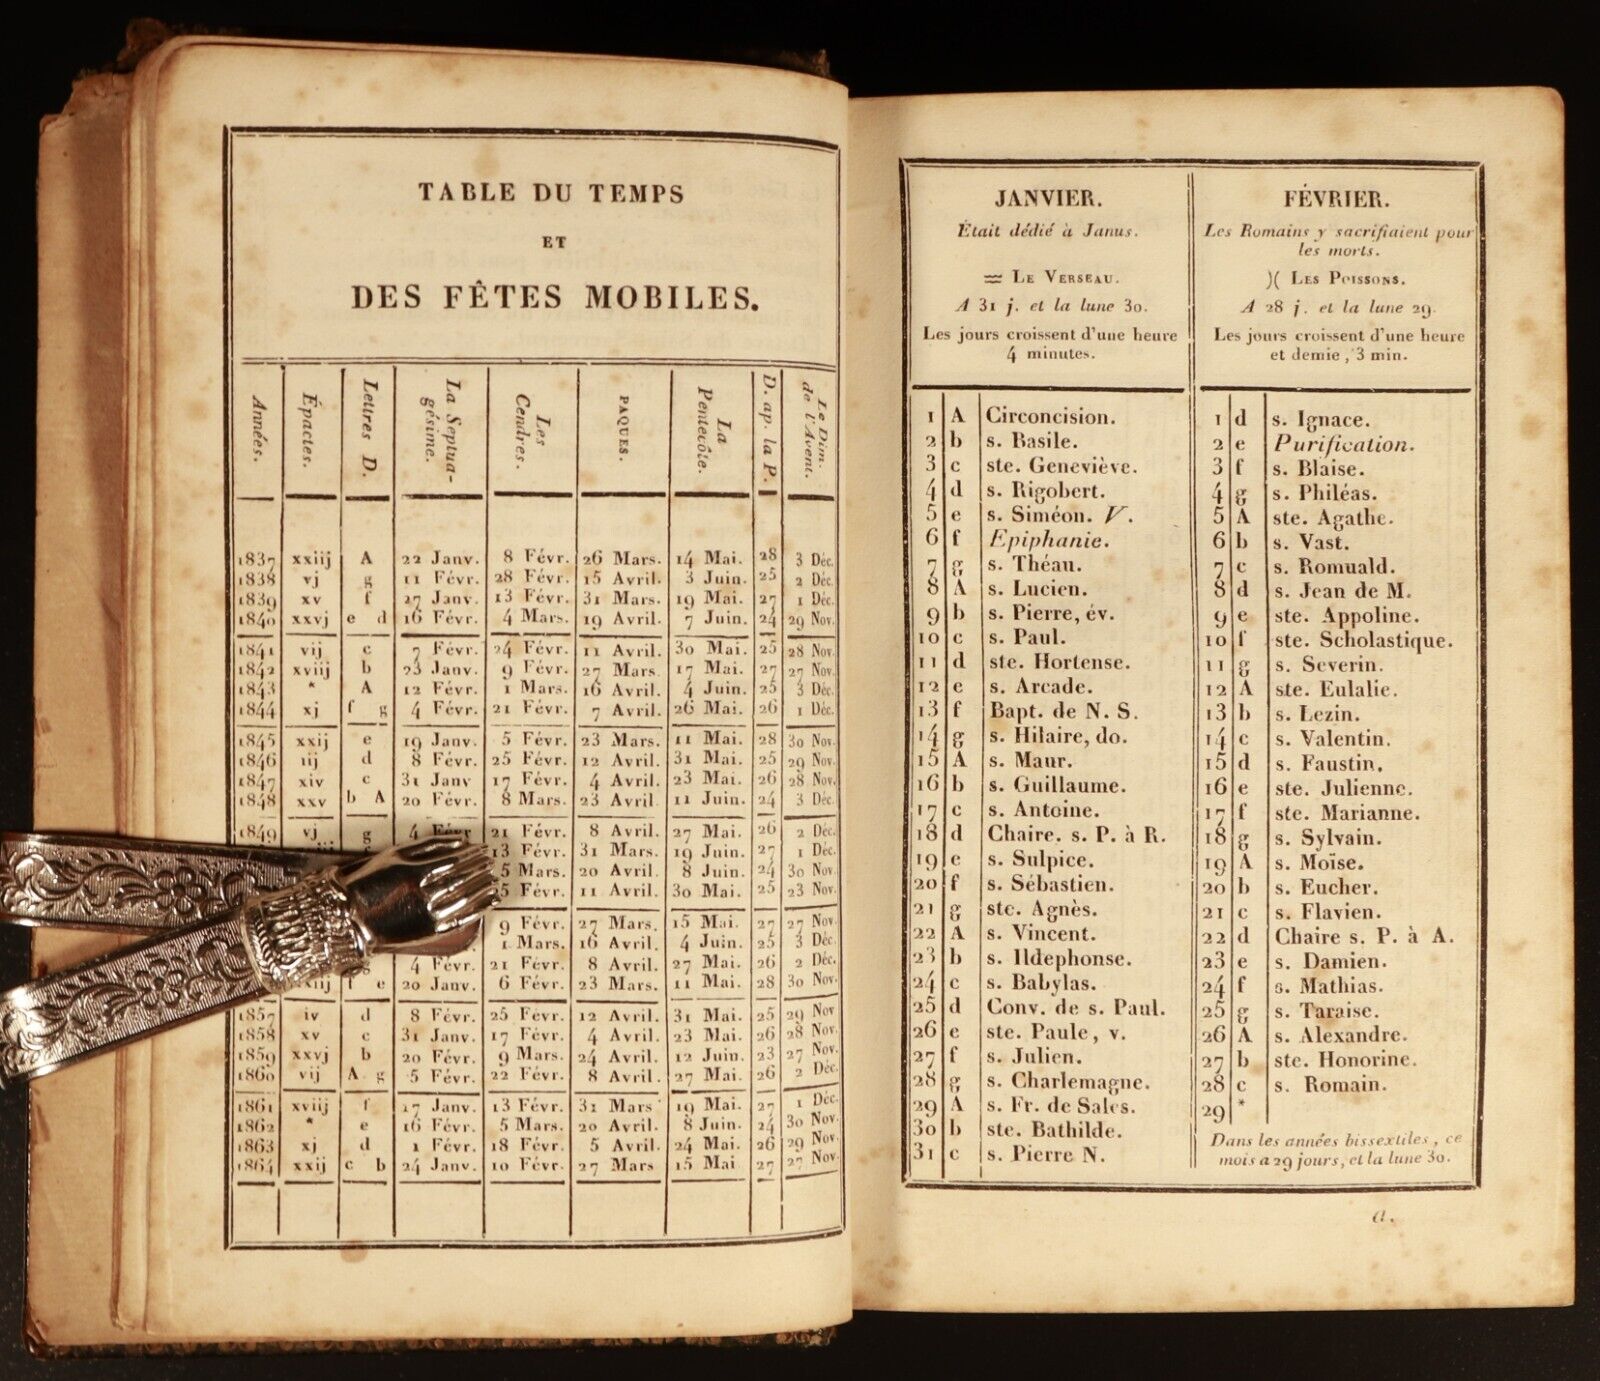 TABLE DU TEMPS
ET
DES FÊTES MOBILES.
Années. Épactes. Lettres D. La Septua-gésime. Les Cendres. PAQUES. La Pentecôte. D. ap. la P. Le Dim. de l'Avent.
1837 xxiij A 22 Janv. 8 Févr. 26 Mars. 14 Mai. 28 3 Déc.
1838 vj g 11 Févr. 28 Févr. 15 Avril. 3 Juin. 25 2 Déc.
1839 xv f 27 Janv. 13 Févr. 31 Mars. 19 Mai. 27 1 Déc.
1840 xxvj e d 16 Févr. 4 Mars. 19 Avril. 7 Juin. 24 29 Nov.
1841 vij c 7 Févr. 24 Févr. 11 Avril. 30 Mai. 25 28 Nov.
1842 xviij b 23 Janv. 9 Févr. 27 Mars. 17 Mai. 27 27 Nov.
1843 * A 12 Févr. 1 Mars. 16 Avril. 4 Juin. 25 3 Déc.
1844 xj f g 4 Févr. 21 Févr. 7 Avril. 26 Mai. 26 1 Déc.
1845 xxij e 19 Janv. 5 Févr. 23 Mars. 11 Mai. 28 30 Nov.
1846 iij d 8 Févr. 25 Févr. 12 Avril. 31 Mai. 25 29 Nov.
1847 xiv c 31 Janv 17 Févr. 4 Avril. 23 Mai. 26 28 Nov.
1848 xxv b A 20 Févr. 8 Mars. 23 Avril 11 Juin. 24 3 Déc.
1849 vj g 4 Févr 21 Févr. 8 Avril. 27 Mai. 26 2 Déc.
13 Févr. 31 Mars. 19 Juin. 27 1 Déc.
5 Mars. 20 Avril. 8 Juin. 24 30 Nov.
25 Févr. 11 Avril. 30 Mai. 25 23 Nov.
9 Févr. 27 Mars. 15 Mai. 27 27 Nov
1 Mars. 16 Avril. 4 Juin. 25 3 Déc.
4 Févr. 21 Févr. 8 Avril. 27 Mai. 26 2 Déc.
f e 20 Janv. 6 Févr. 23 Mars. 11 Mai. 28 30 Nov.
1857 iv d 8 Févr. 25 Févr. 12 Avril. 31 Mai. 25 29 Nov
1858 xv c 31 Janv. 17 Févr. 4 Avril. 23 Mai. 26 28 Nov.
1859 xxvj b 20 Févr. 9 Mars. 24 Avril. 12 Juin. 23 27 Nov.
1860 vij A g 5 Févr. 22 Févr. 8 Avril. 27 Mai. 26 2 Déc.
1861 xviij f 17 Janv. 13 Févr. 31 Mars 19 Mai. 27 1 Déc.
1862 * e 16 Févr. 5 Mars. 20 Avril. 8 Juin. 24 30 Nov.
1863 xj d 1 Févr. 18 Févr. 5 Avril. 24 Mai. 26 29 Nov.
1864 xxij c b 24 Janv. 10 Févr. 27 Mars 15 Mai. 27 27 Nov.
JANVIER.
Était dédié à Janus.
♒ LE VERSEAU.
A 31 j. et la lune 30.
Les jours croissent d'une heure
4 minutes.
1 A Circoncision.
2 b s. Basile.
3 c ste. Geneviève.
4 d s. Rigobert.
5 e s. Siméon. V.
6 f Epiphanie.
7 g s. Théau.
8 A s. Lucien.
9 b s. Pierre, év.
10 c s. Paul.
11 d ste. Hortense.
12 e s. Arcade.
13 f Bapt. de N. S.
14 g s. Hilaire, do.
15 A s. Maur.
16 b s. Guillaume.
17 c s. Antoine.
18 d Chaire. s. P. à R.
19 e s. Sulpice.
20 f s. Sébastien.
21 g ste. Agnès.
22 A s. Vincent.
23 b s. Ildephonse.
24 c s. Babylas.
25 d Conv. de s. Paul.
26 e ste. Paule, v.
27 f s. Julien.
28 g s. Charlemagne.
29 A s. Fr. de Sales.
30 b ste. Bathilde.
31 c s. Pierre N.
FÉVRIER.
Les Romains y sacrifiaient pour
les morts.
)( LES POISSONS.
A 28 j. et la lune 29.
Les jours croissent d'une heure
et demie, 3 min.
1 d s. Ignace.
2 e Purification.
3 f s. Blaise.
4 g s. Philéas.
5 A ste. Agathe.
6 b s. Vast.
7 c s. Romuald.
8 d s. Jean de M.
9 e ste. Appoline.
10 f ste. Scholastique.
11 g s. Severin.
12 A ste. Eulalie.
13 b s. Lezin.
14 c s. Valentin.
15 d s. Faustin.
16 e ste. Julienne.
17 f ste. Marianne.
18 g s. Sylvain.
19 A s. Moïse.
20 b s. Eucher.
21 c s. Flavien.
22 d Chaire s. P. à A.
23 e s. Damien.
24 f s. Mathias.
25 g s. Taraise.
26 A s. Alexandre.
27 b ste. Honorine.
28 c s. Romain.
29 *
Dans les années bissextiles, ce
mois a 29 jours, et la lune 30.
a.